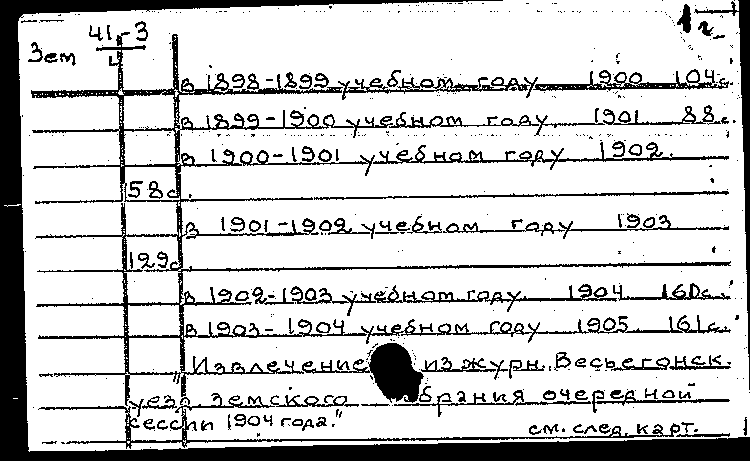 1 г.
Зем 41-3
4
в 1898-1899 учебном году 1900 104с.
в 1899-1900 учебном году 1901 88с.
в 1900-1901 учебном году 1902.
58с.
в 1901-1902 учебном году 1903
129с.
в 1902-1903 учебном году. 1904 160с.
в 1903-1904 учебном году 1905 161с.
"Извлечение из журн. Весьегонск.
уезд. земского собрания очередной
сессии 1904 года."
см. след. карт.